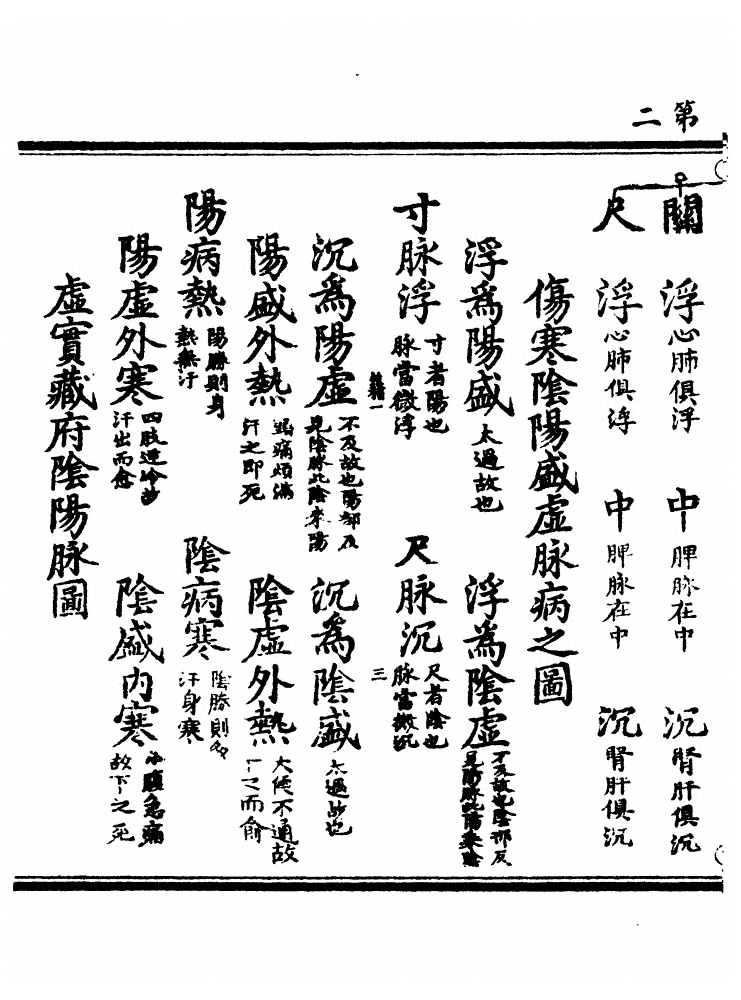 第二
關 浮心肺俱浮 中脾脉在中 沉腎肝俱沉
尺 浮心肺俱浮 中脾脉在中 沉腎肝俱沉
傷寒陰陽盛虛脉病之圖
浮為陽盛太過故也 浮為陰虛不及故也陰部反見陽脉此陽乘陰
寸脉浮寸者陽也脉當微浮 尺脉沉尺者陰也脉當微沉
三
沉為陽虛不及故也陽部反見陰脉此陰來陽 沉為陰盛太過故也
陽盛外熱頭痛煩滿汗之即死 陰虛外熱大便不通故下之而俞
陽病熱陽勝則身熱無汗 陰病寒陰勝則多汗身寒
陽虛外寒四肢逆冷故汗出而愈 陰盛內寒小腹急痛故下之死
虛實藏府陰陽脉圖